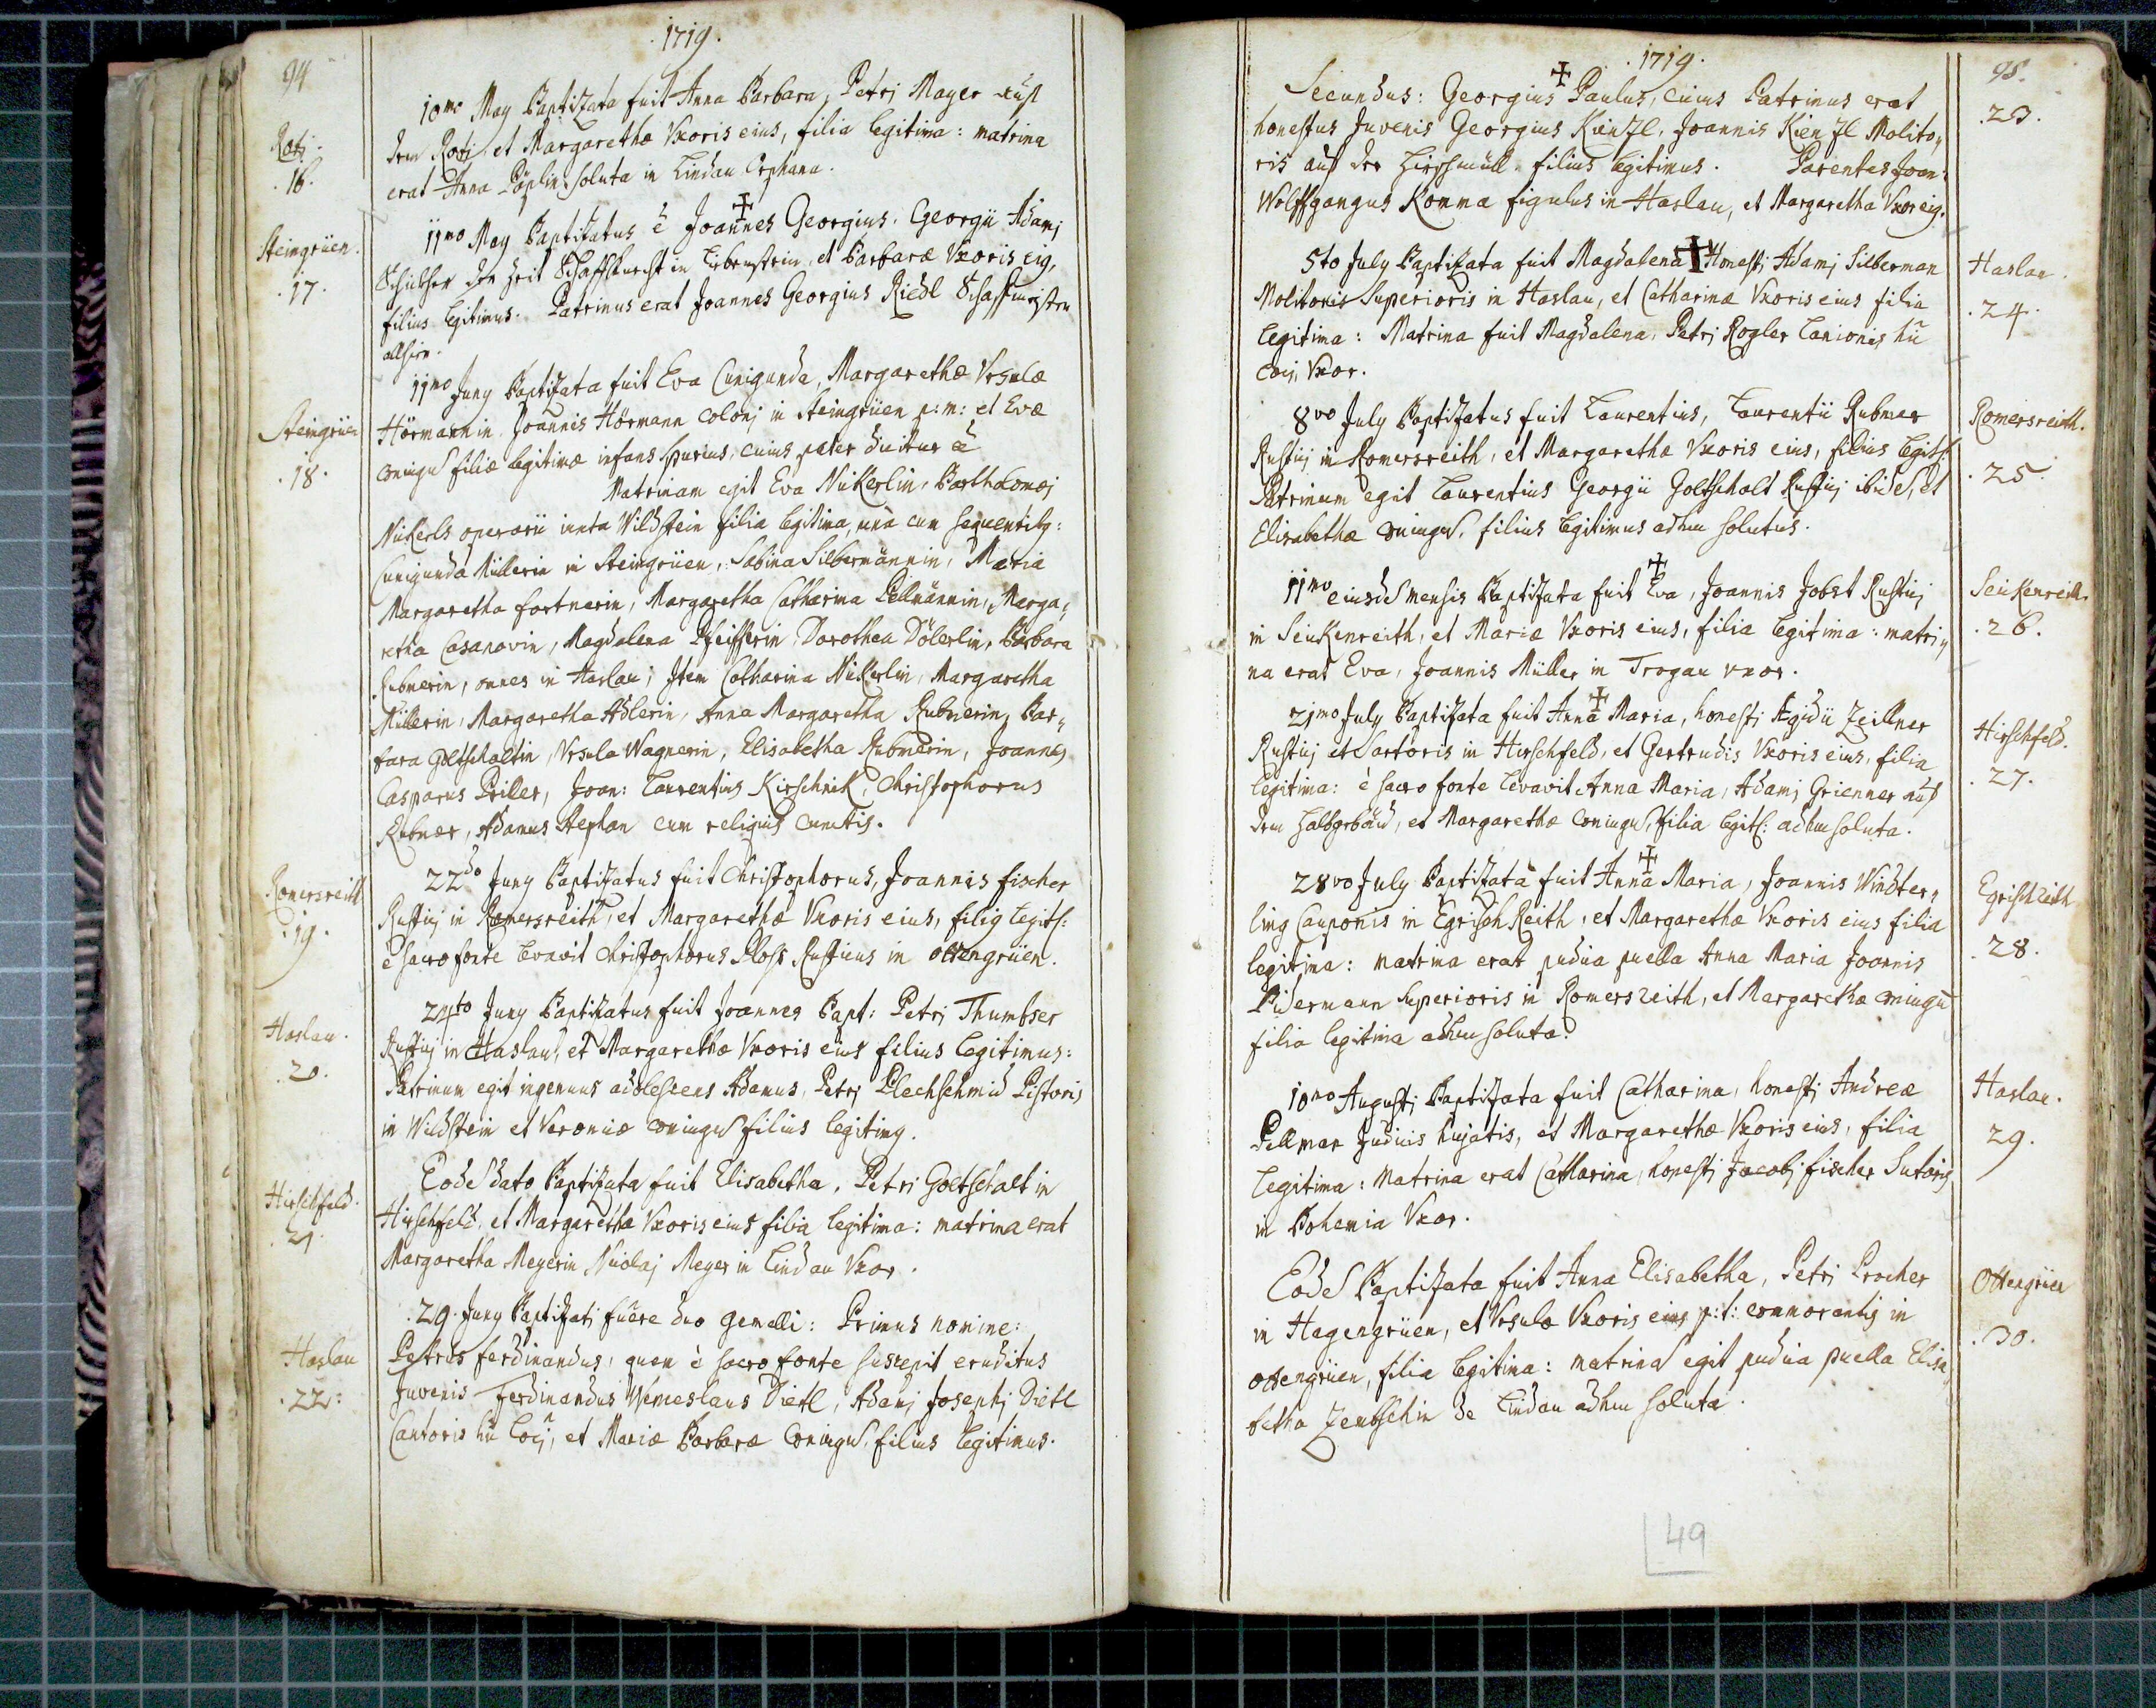 94
.1719.
Roti.
.16.
10mo May Baptizata fuit Anna Barbara, Petri Mayer auß
dem Roti, et Margarethæ Vxoris eius, filia legitima: matrina
erat Anna Löplin soluta in Lindau Orphana.
Steingrüen.
.17.
11mo May Baptizatus ē Joannes Georgius, Georgii Adamj
der Zeit Schaffknecht in Liebenstein, et Barbaræ Vxoris eig,
filius legitimus. Patrinus erat Joannes Georgius Riedl Schaffmeister
allhier.
Steingrüen
.18.
11mo Juny Baptizata fuit Eva Cunigunda, Margarethæ Vrsulæ
Hörmannin, Joannis Hörmann Colonj in Steingrüen p: m: et Evæ
coniugū filiæ legitimæ infans spurius, cuius pater dicitur ē
Matrinam egit Eva Nickerlin, Bartholomæj
Nickerls operarii iuxta Wildstein filia legitima, unà cum sequentibg:
Cunigunda Müllerin in Steingrüen, Sabina Silbermännin, Maria
Margaretha fortnerin, Margaretha Catharina Pellmännin, Marga,,
retha Casanovin, Magdalena Pfeifferin Dorothea Dölerlin, Barbara
Rubnerin, omnes in Haslau; Item Catharina Nickerlin, Margaretha
Müllerin, Margaretha Adlerin, Anna Margaretha Rubnerin, Bar,,
bara Goltschaltin, Vrsula Wagnerin, Elisabetha Rubnerin, Joannes
Casparus Priller, Joan: Laurentius Kirschnek, Christophorus
Rubner, Adamus Stephan cum reliquis cunctis.
Romersreith
.19.
22do Juny Baptizatus fuit Christophorus, Joannis fischer
Rustici in Romersreith, et Margarethæ Vxoris eius, filig legits:
è sacro fonte levavit Christophorus Ploß Rusticus in Ottengrüen.
Haslau.
.20.
24to Juny Baptizatus fuit Joannes Bapt: Petri Thumbser
Rustici in Haslau, et Margarethæ Vxoris eius filius legitimus:
Patrinum egit ingenuus adolescens Adamus, Petri Plechschmid Pistoris
in Wildstein et Veronicæ coniugū filius legitimg.
Hirschfeld.
.21.
Eodē dato Baptizata fuit Elisabetha, Petri Goltschalt in
Hirschfeld, et Margarethæ Vxoris eius filia legitima: matrina erat
Margaretha Meyerin Nicolaj Meyer in Lindau Vxor.
Haslau
.22:
.29. Juny Baptizati fuêre duo gemelli: Primus nomine:
Petrus ferdinandus, quem è sacro fonte suscepit eruditus
Juvenis Ferdinandus Wenceslaus Dietl, Adami Josephi Dietl
Cantoris hū loci, et Mariæ Barbaræ coniugū, filius legitimus.
.1719.
95.
.23.
Secundus: Georgius Paulus, cuius Patrinus erat
honestus Juvenis Georgius Kienzl, Joannis Kienzl Molito,,
ris auß der Hirschmüll filius legitimus. Parentes Joan:
Wolffgangus Konna figulus in Haslau, et Margaretha Vxor eig.
Haslau.
.24.
5to July Baptizata fuit Magdalena Honesti Adamj Silberman
Molitoris Superioris in Haslau, et Catharinæ Vxoris eius filia
legitima: Matrina fuit Magdalena, Petri Rogler Lanionis hū
loci, Vxor.
Romersreith.
.25.
8vo July Baptizatus fuit Laurentius, Laurentii Rubner
Rustici in Romersreith, et Margarethæ Vxoris eius, filius legits:
Patrinum egit Laurentius Georgii Goltschalt Rustici ibidē, et
Elisabethæ coniugū, filius legitimus adhuc solutus.
Seickenreith.
.26.
11mo eiusdē mensis Baptizata fuit Eva, Joannis Jobst Rustici
in Seickenreith, et Mariæ Vxoris eius, filia legitima: matri,,
na erat Eva, Joannis Müller in Trogau vxor.
Hirschfeld.
.27.
21mo July Baptizata fuit Anna Maria, honesti Ægidii Zeillner
Rustici et Sartoris in Hirschfeld, et Gertrudis Vxoris eius, filia
legitima: è sacro fonte levavit Anna Maria, Adamj Grienner auß
dem Halbgebäu, et Margarethæ coniugū, filia legits: adhuc soluta.
Egrischreith
.28.
28vo July Baptizata fuit Anna Maria, Joannis Windter,,
ling Cauponis in EgrischReith, et Margarethæ Vxoris eius filia
legitima: matrina erat pudica puella Anna Maria Joannis
Pidermann Superioris in Romersreith, et Margarethæ coniugū
filia legitima adhuc soluta.
Haslau.
29.
10mo Augusti Baptizata fuit Catharina, honesti Andreæ
Pellman Judicis hujatis, et Margarethæ Vxoris eius, filia
legitima: Matrina erat Catharina, honesti Jacobj fischer Sutoris
in Bohemia Vxor.
Ottengrüen
.30.
Eodē Baptizata fuit Anna Elisabetha, Petri Procher
in Hagengrüen, et Vrsulæ Vxoris eius p: t: commorantis in
Ottengrüen, filia legitima: matrinā egit pudica puella Elisa,,
betha Zembschin de Lindau adhuc soluta.
49